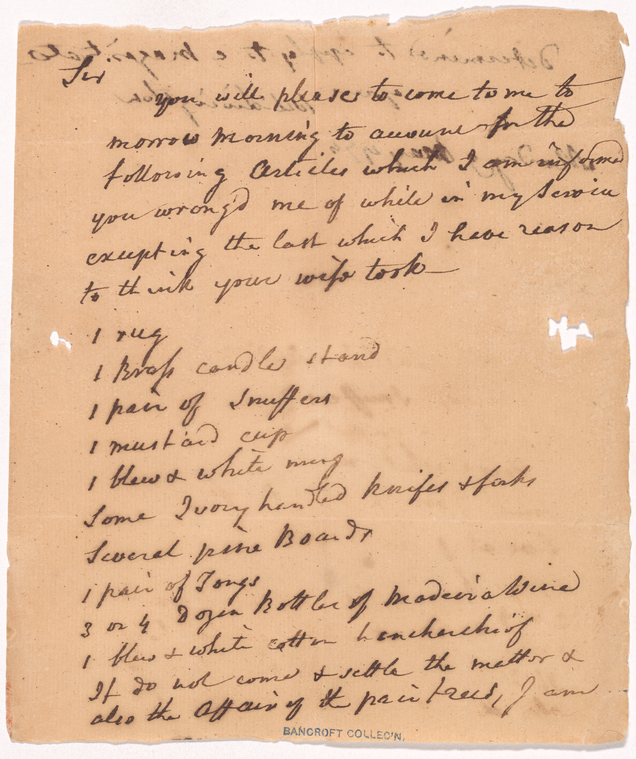 Sir
you will please to come to me to
morrow morning to account for the
following Articles which I am informed
you wrong'd me of while in my Service
excepting the last which I have reason
to think your wife took
1 rug
1 Brass candle stand
1 pair of Snuffers
1 mustard cup
1 blew & white mug
Some Ivory handled knifes & forks
Several pine Boards
1 pair of Tongs
3 or 4 Dozen Bottles of Madeira Wine
1 blew & white cotton hancherchief
If do not come & settle the matter &
also the Affair of the pair trees, I am
BANCROFT COLLEC'N.